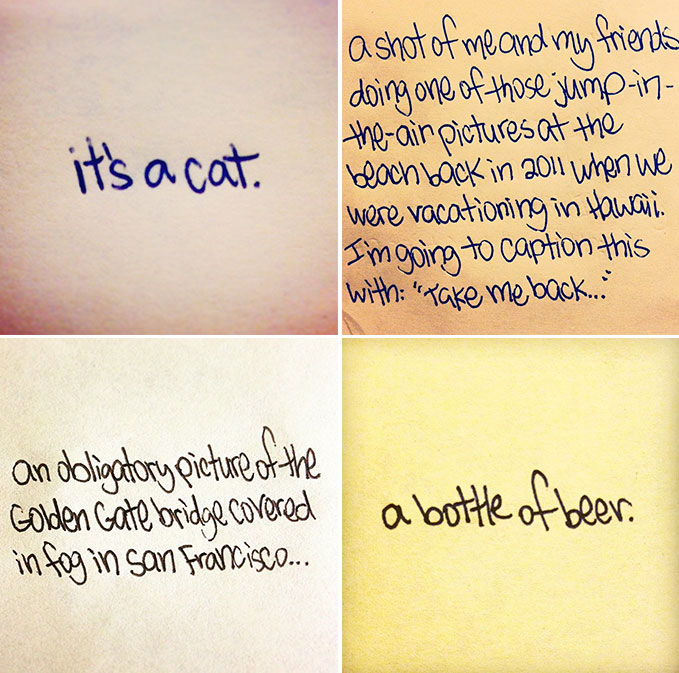 it's a cat.
a shot of me and my friends
doing one of those jump-in-
the-air pictures at the
beach back in 2011 when we
were vacationing in Hawaii.
I'm going to caption this
with: "Take me back..."
an obligatory picture of the
Golden Gate bridge covered
in fog in San Francisco...
a bottle of beer.